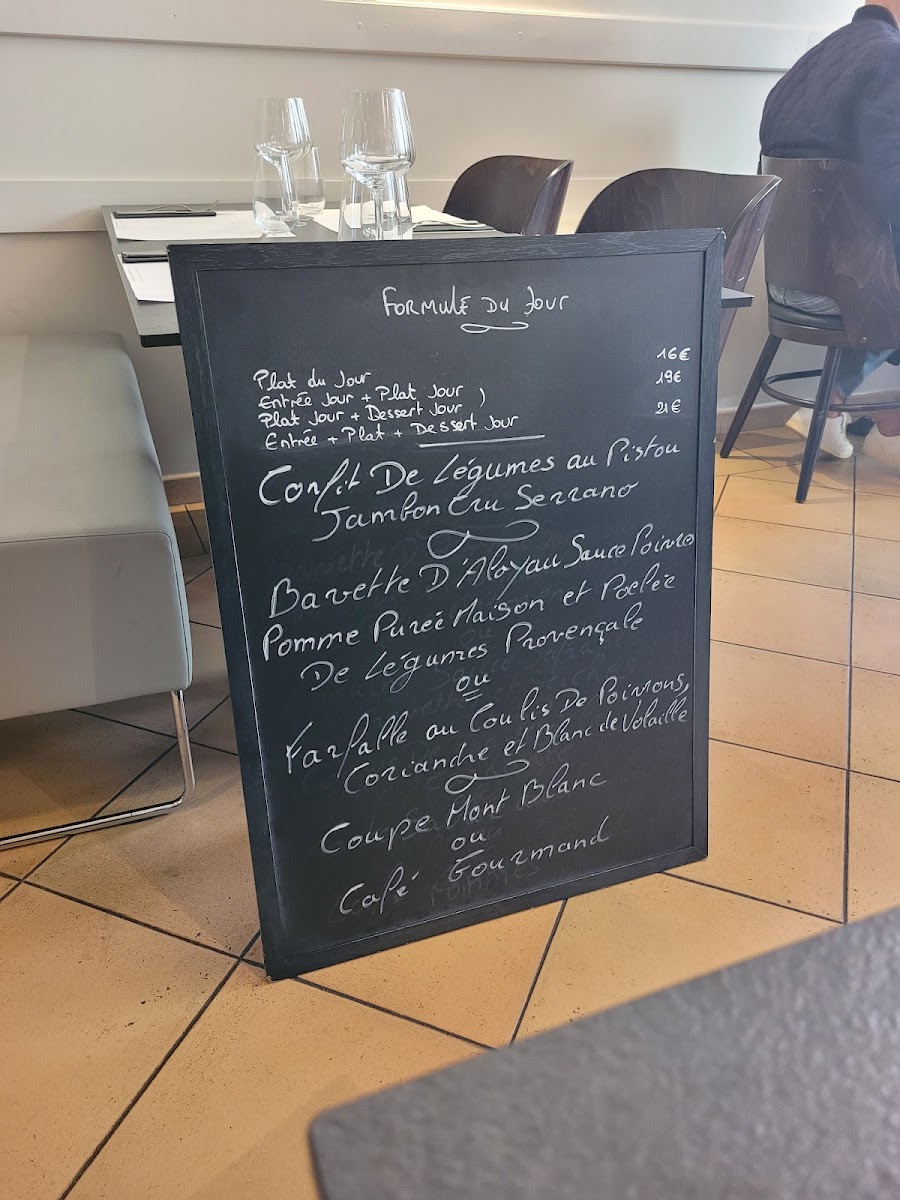 Formule du Jour
Plat du Jour 16€
Entrée Jour + Plat Jour ) 19€
Plat Jour + Dessert Jour
Entrée + Plat + Dessert Jour 21€
Confit De Légumes au Pistou
Jambon Cru Serrano
Bavette D'Aloyau Sauce Poivres
Pomme Pureé Maison et Poêlée
De Légumes Provençale
ou
Farfalle au Coulis De Poivrons,
Coriandre et Blanc de Volaille
Coupe Mont Blanc
ou
Café Gourmand